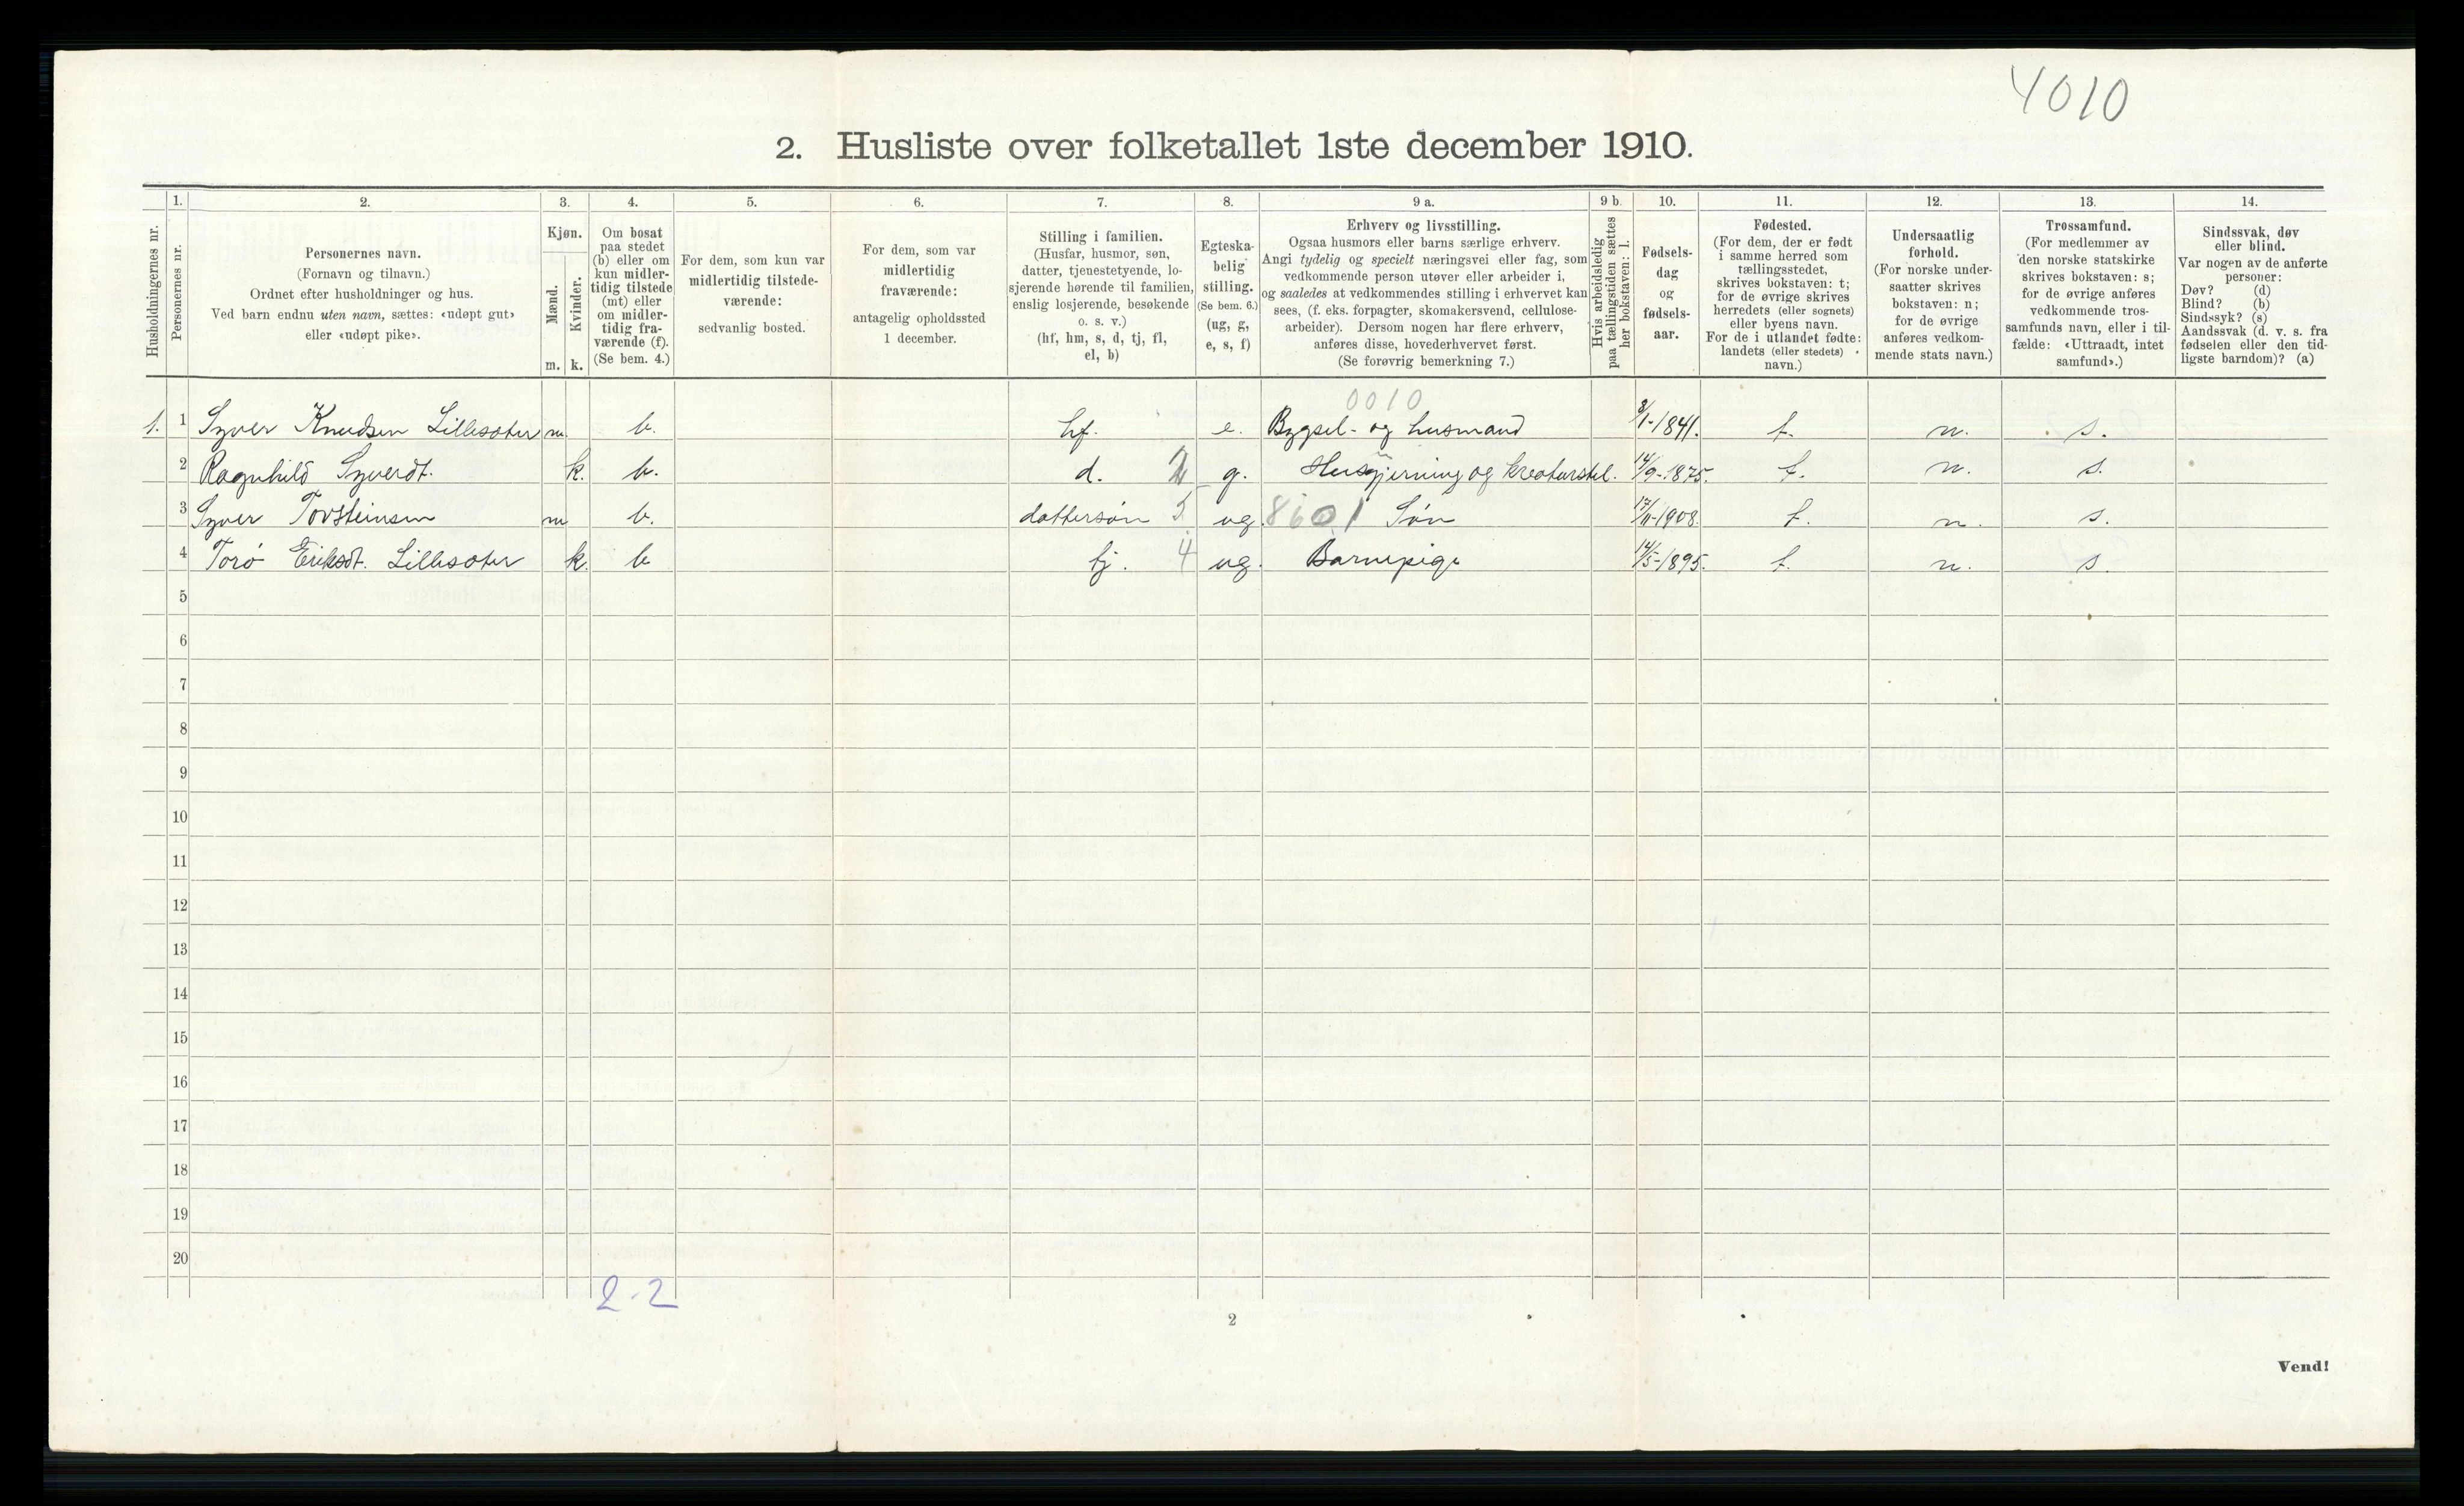 4010
2. Husliste over folketallet 1ste december 1910.
Husholdningernes nr.
1.
Personernes nr.
2.
Personernes navn.
(Fornavn og tilnavn.)
Ordnet efter husholdninger og hus.
Ved barn endnu uten navn, sættes: «udøpt gut»
eller «udøpt pike».
3.
Kjøn.
Mænd.
Kvinder.
m. k.
4.
Om bosat
paa stedet
(b) eller om
kun midler-
tidig tilstede
(mt) eller
om midler-
tidig fra-
værende (f).
(Se bem. 4.)
5.
For dem, som kun var
midlertidig tilstede-
værende:
sedvanlig bosted.
6.
For dem, som var
midlertidig
fraværende:
antagelig opholdssted
1 december.
7.
Stilling i familien.
(Husfar, husmor, søn,
datter, tjenestetyende, lo-
sjerende hørende til familien,
enslig losjerende, besøkende
o. s. v.)
(hf, hm, s, d, tj, fl,
el, b)
8.
Egteska-
belig
stilling.
(Se bem. 6.)
(ug, g,
e, s, f)
9 a.
Erhverv og livsstilling.
Ogsaa husmors eller barns særlige erhverv.
Angi tydelig og specielt næringsvei eller fag, som
vedkommende person utøver eller arbeider i,
og saaledes at vedkommendes stilling i erhvervet kan
sees, (f. eks. forpagter, skomakersvend, cellulose-
arbeider). Dersom nogen har flere erhverv,
anføres disse, hovederhvervet først.
(Se forøvrig bemerkning 7.)
9 b.
Hvis arbeidsledig
paa tællingstiden sættes
her bokstaven: l.
10.
Fødsels-
dag
og
fødsels-
aar.
11.
Fødested.
(For dem, der er født
i samme herred som
tællingsstedet,
skrives bokstaven: t;
for de øvrige skrives
herredets (eller sognets)
eller byens navn.
For de i utlandet fødte:
landets (eller stedets)
navn.)
12.
Undersaatlig
forhold.
(For norske under-
saatter skrives
bokstaven: n;
for de øvrige
anføres vedkom-
mende stats navn.)
13.
Trossamfund.
(For medlemmer av
den norske statskirke
skrives bokstaven: s;
for de øvrige anføres
vedkommende tros-
samfunds navn, eller i til-
fælde: «Uttraadt, intet
samfund».)
14.
Sindssvak, døv
eller blind.
Var nogen av de anførte
personer:
Døv? (d)
Blind? (b)
Sindssyk? (s)
Aandssvak (d. v. s. fra
fødselen eller den tid-
ligste barndom)? (a)
0010
1. 1 Syver Knudsen Lillesæter m. b. hf. e. Bygsel- og husmand 3/1-1841. t. n. s.
2 Ragnhild Syverdt. k. b. d. 2 g. Husgjerning og kreaturstel. 14/9-1875. t. n. s.
3 Syver Torsteinsen m b. dattersøn 5 ug. 8601 Søn 17/11-1908. t. n. s.
4 Torø Eriksdt. Lillesæter k. b tj. 4 ug. Barnepige 14/5-1895. t. n. s.
5
6
7
8
9
10
11
12
13
14
15
16
17
18
19
20
2-2
2
Vend!